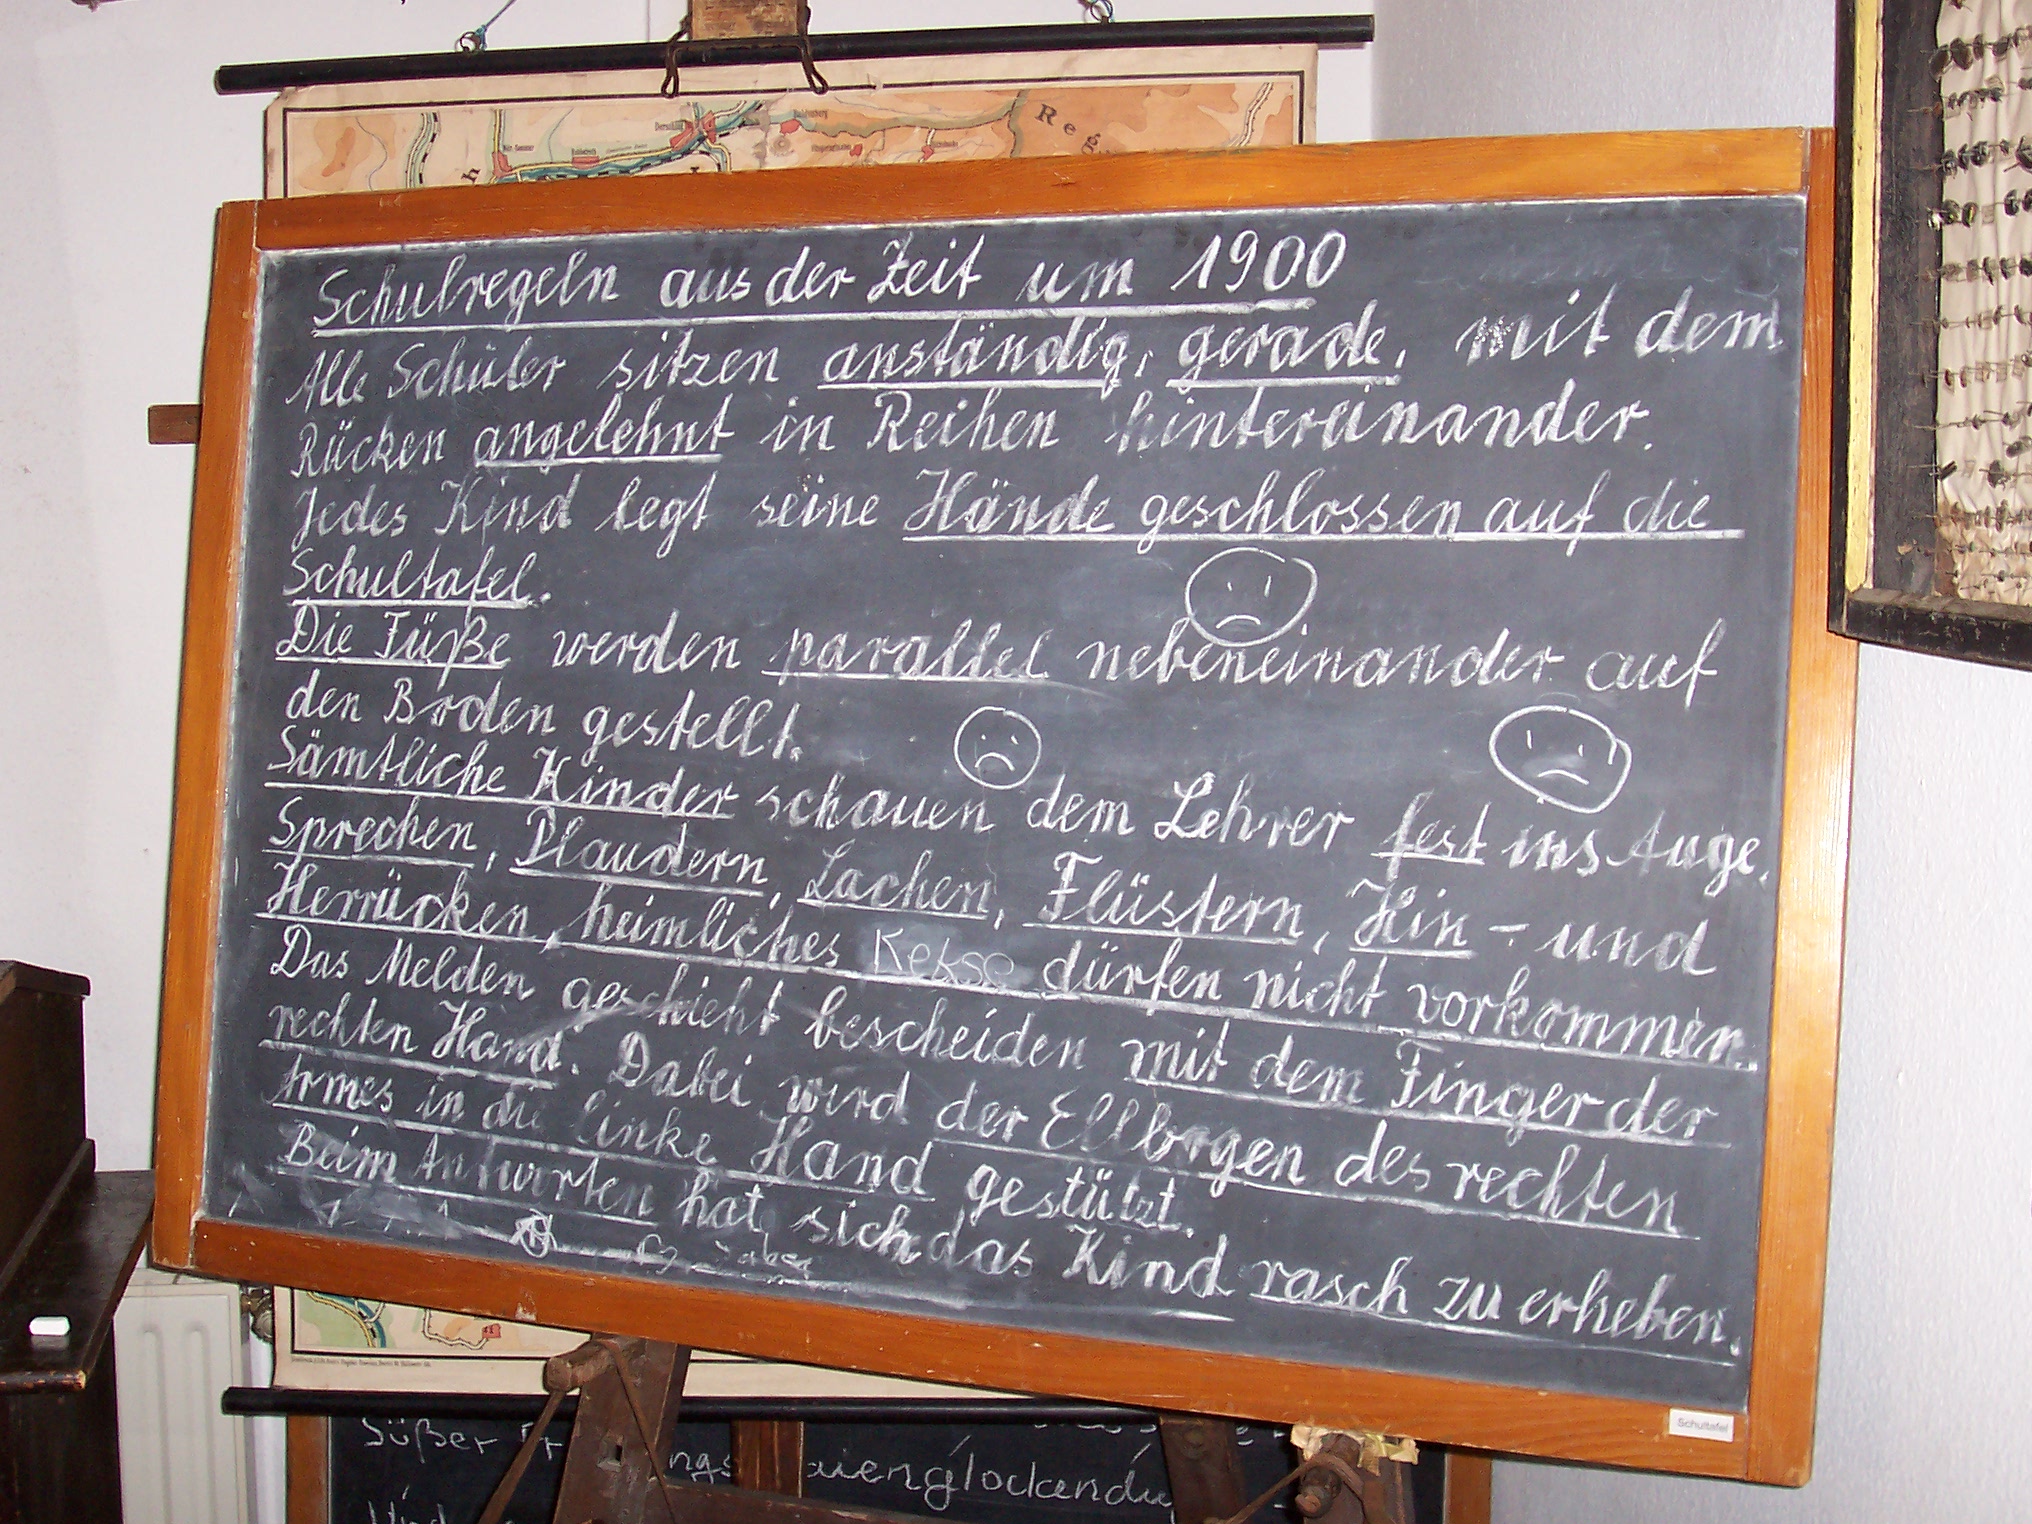 Reg
Schulregeln aus der Zeit um 1900
Alle Schüler sitzen anständig, gerade, mit dem
Rücken angelehnt in Reihen hintereinander.
Jedes Kind legt seine Hände geschlossen auf die
Schultafel.
Die Füße werden parallel nebeneinander auf
den Boden gestellt.
Sämtliche Kinder schauen dem Lehrer fest ins Auge.
Sprechen, Plaudern, Lachen, Flüstern, Hin- und
Herrücken, heimliches Kekse dürfen nicht vorkommen.
Das Melden geschieht bescheiden mit dem Finger der
rechten Hand. Dabei wird der Ellbogen des rechten
Armes in die linke Hand gestützt.
Beim Antworten hat sich das Kind rasch zu erheben.
Schultafel
Süßer